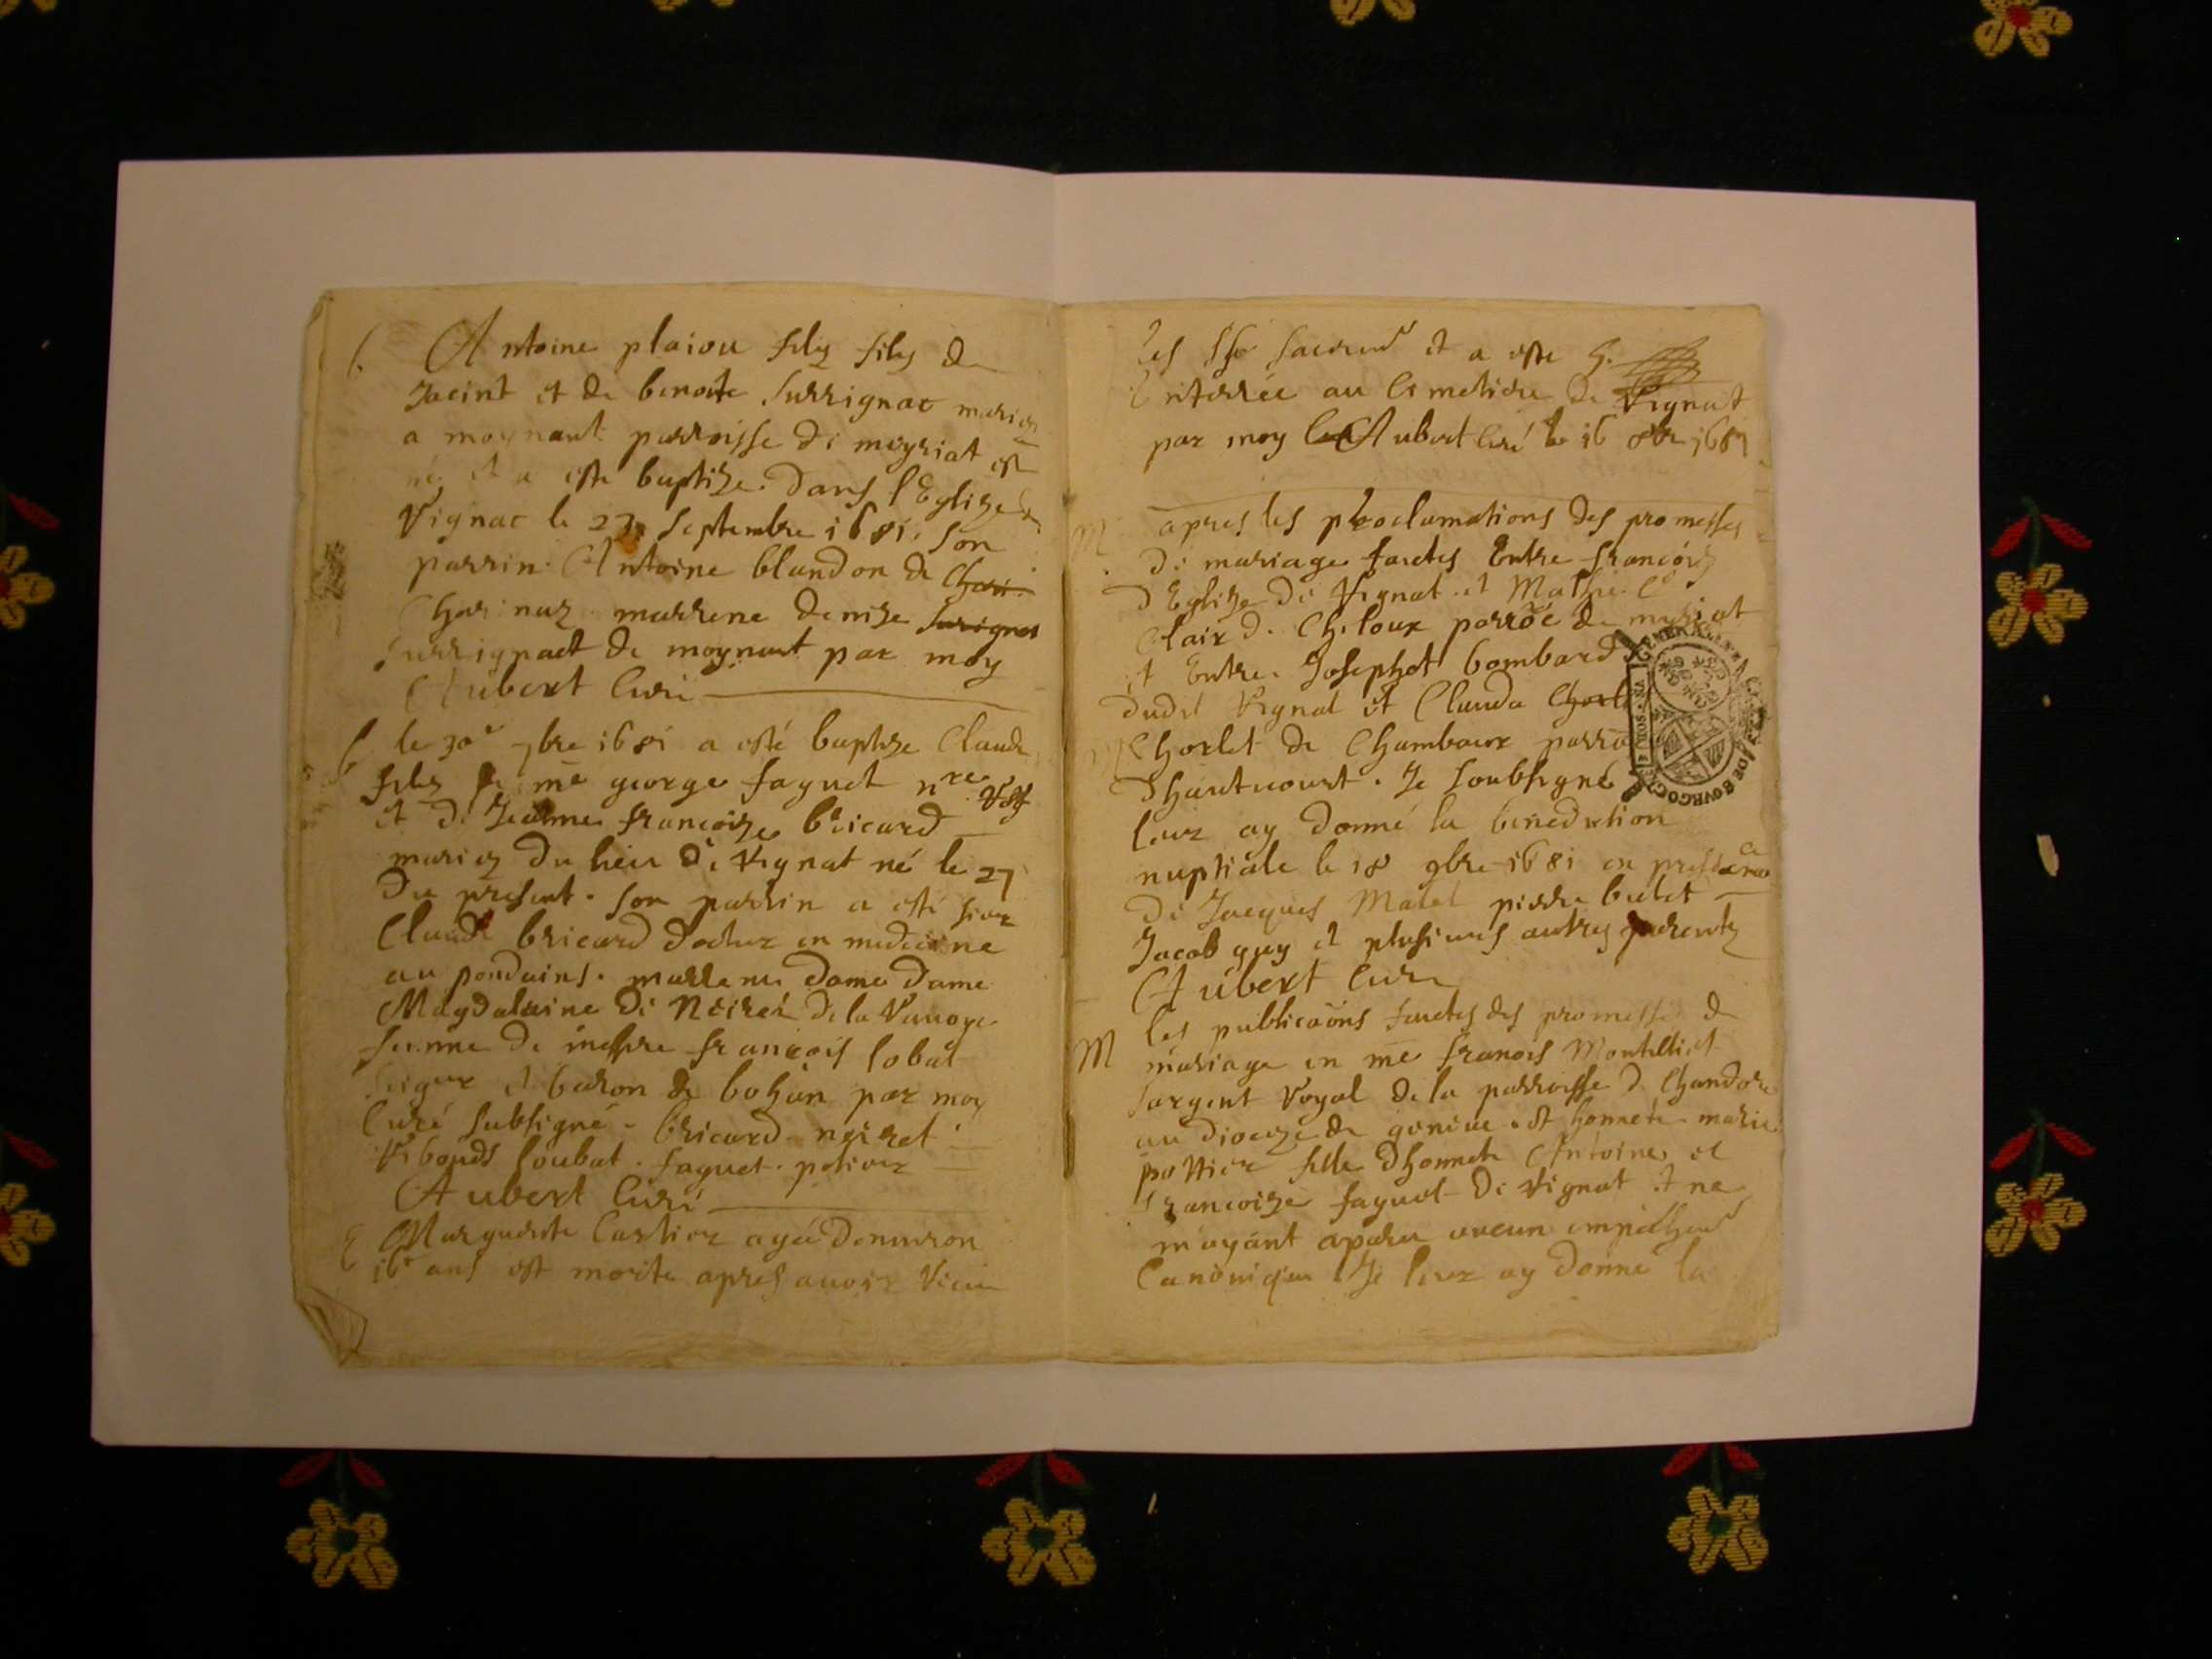 b. Antoine plaiou filz filz de
Jacint et de benoite surrignat mariez
a moynant parroisse de meyriat est
né et a esté baptize dans l'Eglize de
Vignat le 27 septembre 1681. son
parrin Antoine blandon de Chari
Charinaz marrene denize surignat
surrignact de moynant par moy
Aubert curé
b le 30e 7bre 1681 a esté baptize Claude
filz de me george faguet nre
et de Jeanne francoize bricard
mariez du lieu de Vignat né le 27
du present. son parrin a esté sieur
Claude bricard docteur en medicine
au pondains. marrene dame dame
Magdalaine de Neiret de la Vauoye
femme de messre francois lobat
seigur et baron de bohan par moy
curé subsigné. bricard neiret
Vibouds loubat. faguet.
Aubert curé
E Marguerite Cartier agée denuiron
16 ans est morte apres auoir receu
les sts sacremt et a esté
Enterrée au Cimetiere de Vignat
par moy Aubert curé le 16 8bre 1681
M apres les proclamations des promesses
de mariage faictes Entre francois
d'Eglize de Vignat et
Clair de Chiloux parroe de meyriat
et Entre Josephet bombard
dudit Vignat et Clauda Chorl
Chorlet de Chambaux parro
dhautecourt. Je soubsigné
leur ay donné la benediction
nuptiale le 18 9bre 1681 en presence
de Jacques Matet pierre bulet
Jacob guy et plusieurs autres parents
Aubert curé
M les publicaons faictes des promesses de
mariage en me francois Montilliet
sargent Royal de la parroisse de Chandore
au dioceze de geneue. et honnete marie
pottier fille dhonnete Antoine et
francoize faguet de Vignat et ne
mayant aparu aucun empechemt
Canonique Je leur ay donné la